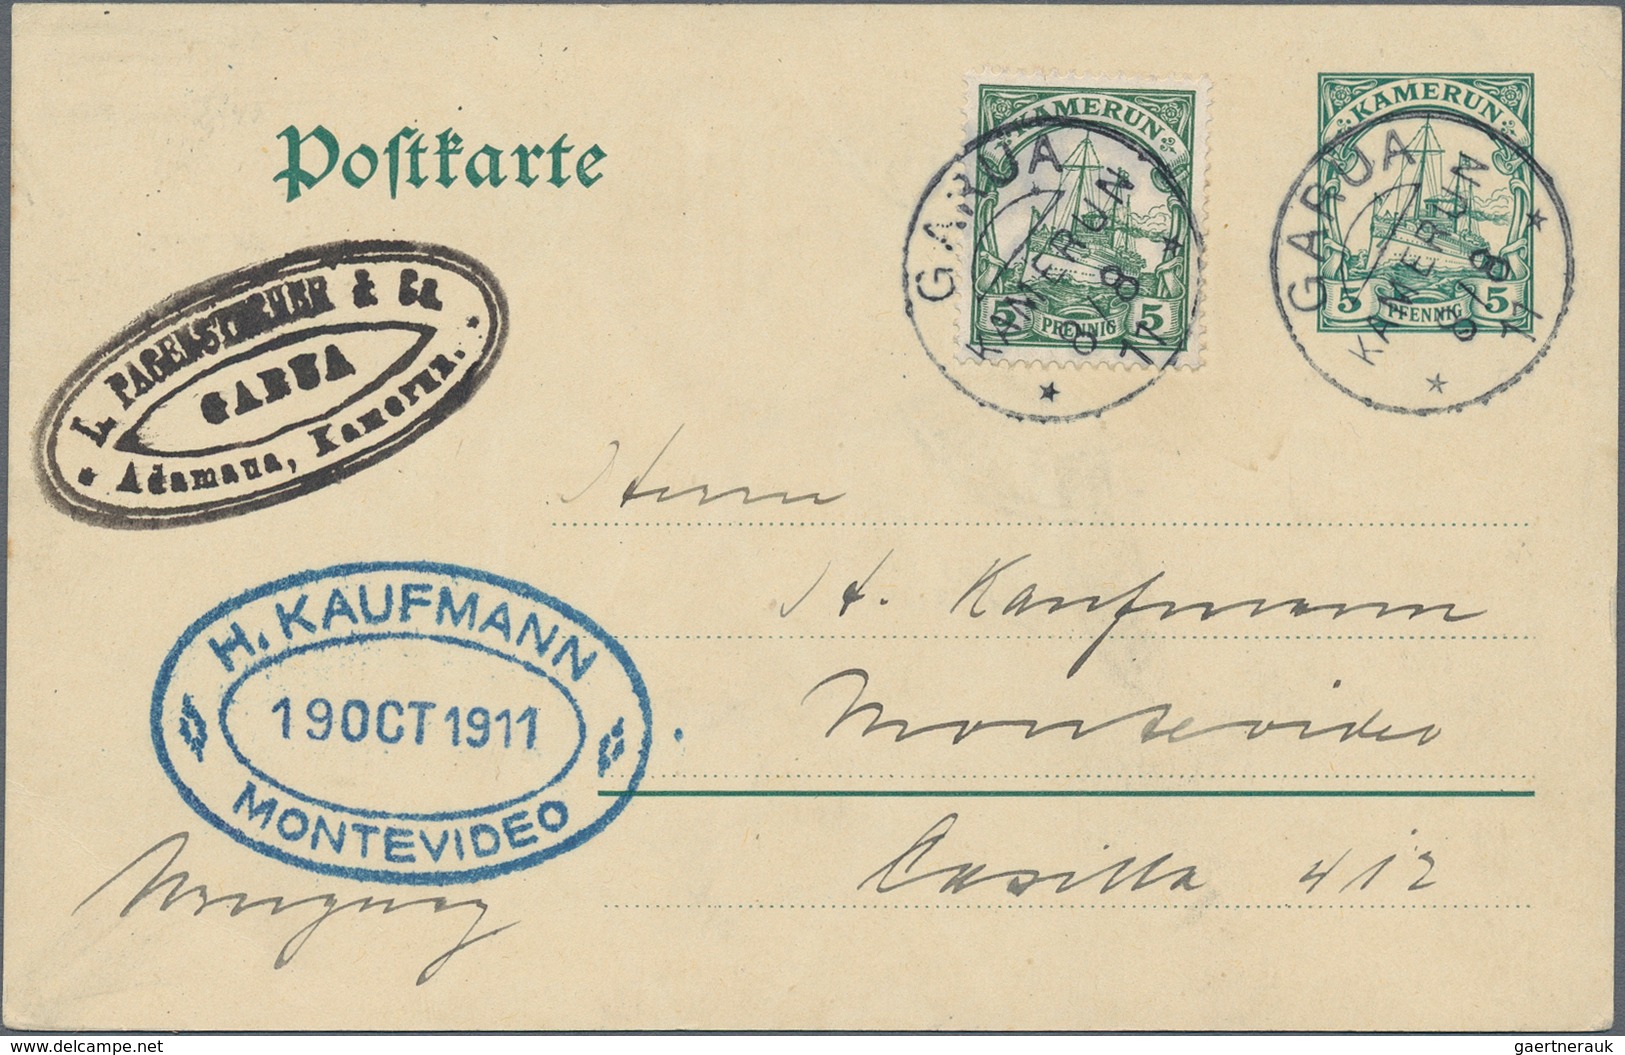 Postkarte
KAMERUN
5 PFENNIG 5
GARUA
KAMERUN
8/8
11
KAMERUN
5 PFENNIG 5
GARUA
KAMERUN
8/8
11
L. PAGENSTECHER & Co.
GARUA
Adamaua, Kamerun.
Herrn
H. Kaufmann
Montevideo
Casilla 412
Uruguay
H. KAUFMANN
19 OCT 1911
MONTEVIDEO
www.delcampe.net
gaertnerauk